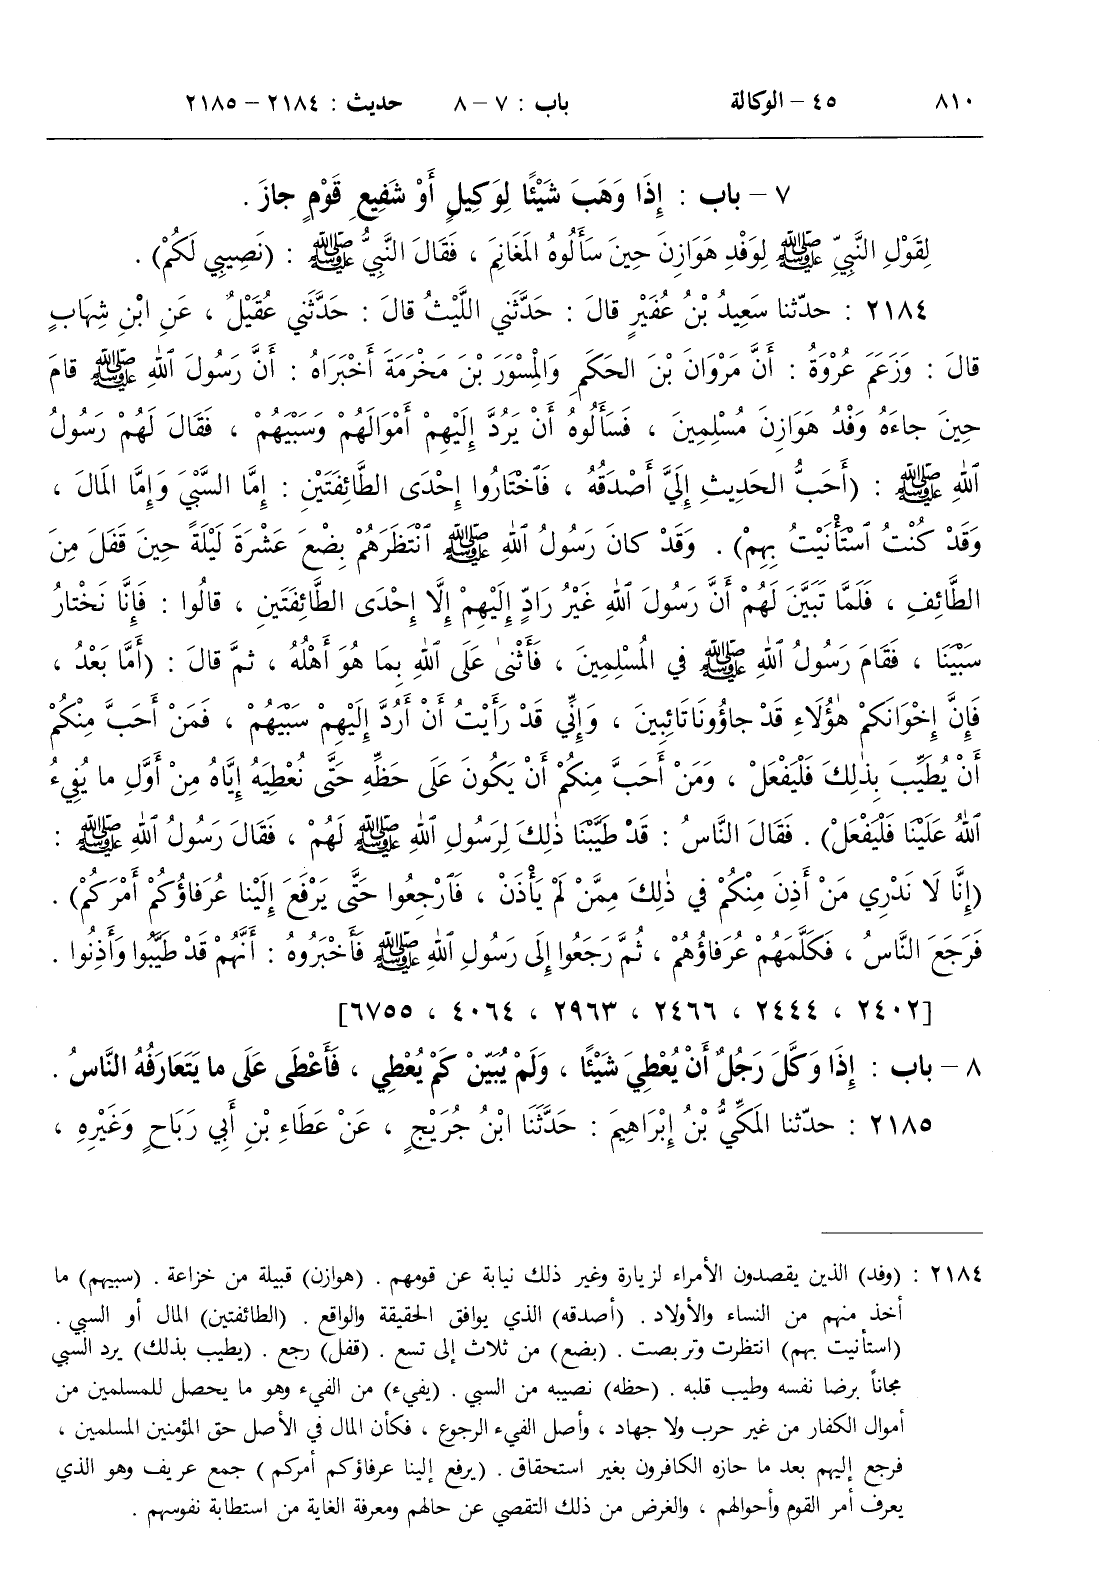 ٨١٠ ٤٥ – الوكالة باب : ٧ – ٨ حديث : ٢١٨٤ – ٢١٨٥
٧ – باب : إِذَا وَهَبَ شَيْئًا لِوَكِيلٍ أَوْ شَفِيعِ قَوْمٍ جازَ .
لِقَوْلِ النَّبِيِّ ﷺ لِوَفْدِ هَوَازِنَ حِينَ سَأَلُوهُ المَغَانِمَ ، فَقَالَ النَّبِيُّ ﷺ : (نَصِيبِي لَكُمْ) .
٢١٨٤ : حدّثنا سَعِيدُ بْنُ عُفَيْرٍ قالَ : حَدَّثَنِي اللَّيْثُ قالَ : حَدَّثَنِي عُقَيْلٌ ، عَنِ ابْنِ شِهَابٍ
قالَ : وَزَعَمَ عُرْوَةُ : أَنَّ مَرْوَانَ بْنَ الحَكَمِ وَالْمِسْوَرَ بْنَ مَخْرَمَةَ أَخْبَرَاهُ : أَنَّ رَسُولَ ٱللهِ ﷺ قامَ
حِينَ جاءَهُ وَفْدُ هَوَازِنَ مُسْلِمِينَ ، فَسَأَلُوهُ أَنْ يَرُدَّ إِلَيْهِمْ أَمْوَالَهُمْ وَسَبْيَهُمْ ، فَقَالَ لَهُمْ رَسُولُ
ٱللهِ ﷺ : (أَحَبُّ الحَدِيثِ إِلَيَّ أَصْدَقُهُ ، فَٱخْتَارُوا إِحْدَى الطَّائِفَتَيْنِ : إِمَّا السَّبْيَ وَإِمَّا المَالَ ،
وَقَدْ كُنْتُ ٱسْتَأْنَيْتُ بِهِمْ) . وَقَدْ كانَ رَسُولُ ٱللهِ ﷺ ٱنْتَظَرَهُمْ بِضْعَ عَشْرَةَ لَيْلَةً حِينَ قَفَلَ مِنَ
الطَّائِفِ ، فَلَمَّا تَبَيَّنَ لَهُمْ أَنَّ رَسُولَ ٱللهِ غَيْرُ رَادٍّ إِلَيْهِمْ إِلَّا إِحْدَى الطَّائِفَتَينِ ، قالُوا : فَإِنَّا نَخْتَارُ
سَبْيَنَا ، فَقَامَ رَسُولُ ٱللهِ ﷺ في المُسْلِمِينَ ، فَأَثْنىٰ عَلَى ٱللهِ بِمَا هُوَ أَهْلُهُ ، ثمَّ قالَ : (أَمَّا بَعْدُ ،
فَإِنَّ إِخْوَانَكُمْ هٰؤُلَاءِ قَدْ جاؤُونَا تَائِبِينَ ، وَإِنِّي قَدْ رَأَيْتُ أَنْ أَرُدَّ إِلَيْهِمْ سَبْيَهُمْ ، فَمَنْ أَحَبَّ مِنْكُمْ
أَنْ يُطَيِّبَ بِذٰلِكَ فَلْيَفْعَلْ ، وَمَنْ أَحَبَّ مِنكُمْ أَنْ يَكُونَ عَلَى حَظِّهِ حَتَّى نُعْطِيَهُ إِيَّاهُ مِنْ أَوَّلِ ما يُفِيءُ
ٱللهُ عَلَيْنَا فَلْيَفْعَلْ) . فَقَالَ النَّاسُ : قَدْ طَيَّبْنَا ذٰلِكَ لِرَسُولِ ٱللهِ ﷺ لَهُمْ ، فَقَالَ رَسُولُ ٱللهِ ﷺ :
(إِنَّا لَا نَدْرِي مَنْ أَذِنَ مِنْكُمْ في ذٰلِكَ مِمَّنْ لَمْ يَأْذَنْ ، فَٱرْجِعُوا حَتَّى يَرْفَعَ إِلَيْنا عُرَفاؤُكُمْ أَمْرَكُمْ) .
فَرَجَعَ النَّاسُ ، فَكَلَّمَهُمْ عُرَفاؤُهُمْ ، ثُمَّ رَجَعُوا إِلَى رَسُولِ ٱللهِ ﷺ فَأَخْبَرُوهُ : أَنَّهُمْ قَدْ طَيَّبُوا وَأَذِنُوا .
[٢٤٠٢ ، ٢٤٤٤ ، ٢٤٦٦ ، ٢٩٦٣ ، ٤٠٦٤ ، ٦٧٥٥]
٨ – باب : إِذَا وَكَّلَ رَجُلٌ أَنْ يُعْطِيَ شَيْئًا ، وَلَمْ يُبَيِّنْ كَمْ يُعْطِي ، فَأَعْطَى عَلَى ما يَتَعَارَفُهُ النَّاسُ .
٢١٨٥ : حدّثنا المَكِّيُّ بْنُ إِبْرَاهِيمَ : حَدَّثَنَا ابْنُ جُرَيْجٍ ، عَنْ عَطَاءِ بْنِ أَبِي رَبَاحٍ وَغَيْرِهِ ،
٢١٨٤ : (وفد) الذين يقصدون الأمراء لزيارة وغير ذلك نيابة عن قومهم . (هوازن) قبيلة من خزاعة . (سبيهم) ما
أخذ منهم من النساء والأولاد . (أصدقه) الذي يوافق الحقيقة والواقع . (الطائفتين) المال أو السبي .
(استأنيت بهم) انتظرت وتربصت . (بضع) من ثلاث إلى تسع . (قفل) رجع . (يطيب بذلك) يرد السبي
مجاناً برضا نفسه وطيب قلبه . (حظه) نصيبه من السبي . (يفيء) من الفيء وهو ما يحصل للمسلمين من
أموال الكفار من غير حرب ولا جهاد ، وأصل الفيء الرجوع ، فكأن المال في الأصل حق المؤمنين المسلمين ،
فرجع إليهم بعد ما حازه الكافرون بغير استحقاق . (يرفع إلينا عرفاؤكم أمركم) جمع عريف وهو الذي
يعرف أمر القوم وأحوالهم ، والغرض من ذلك التقصي عن حالهم ومعرفة الغاية من استطابة نفوسهم .